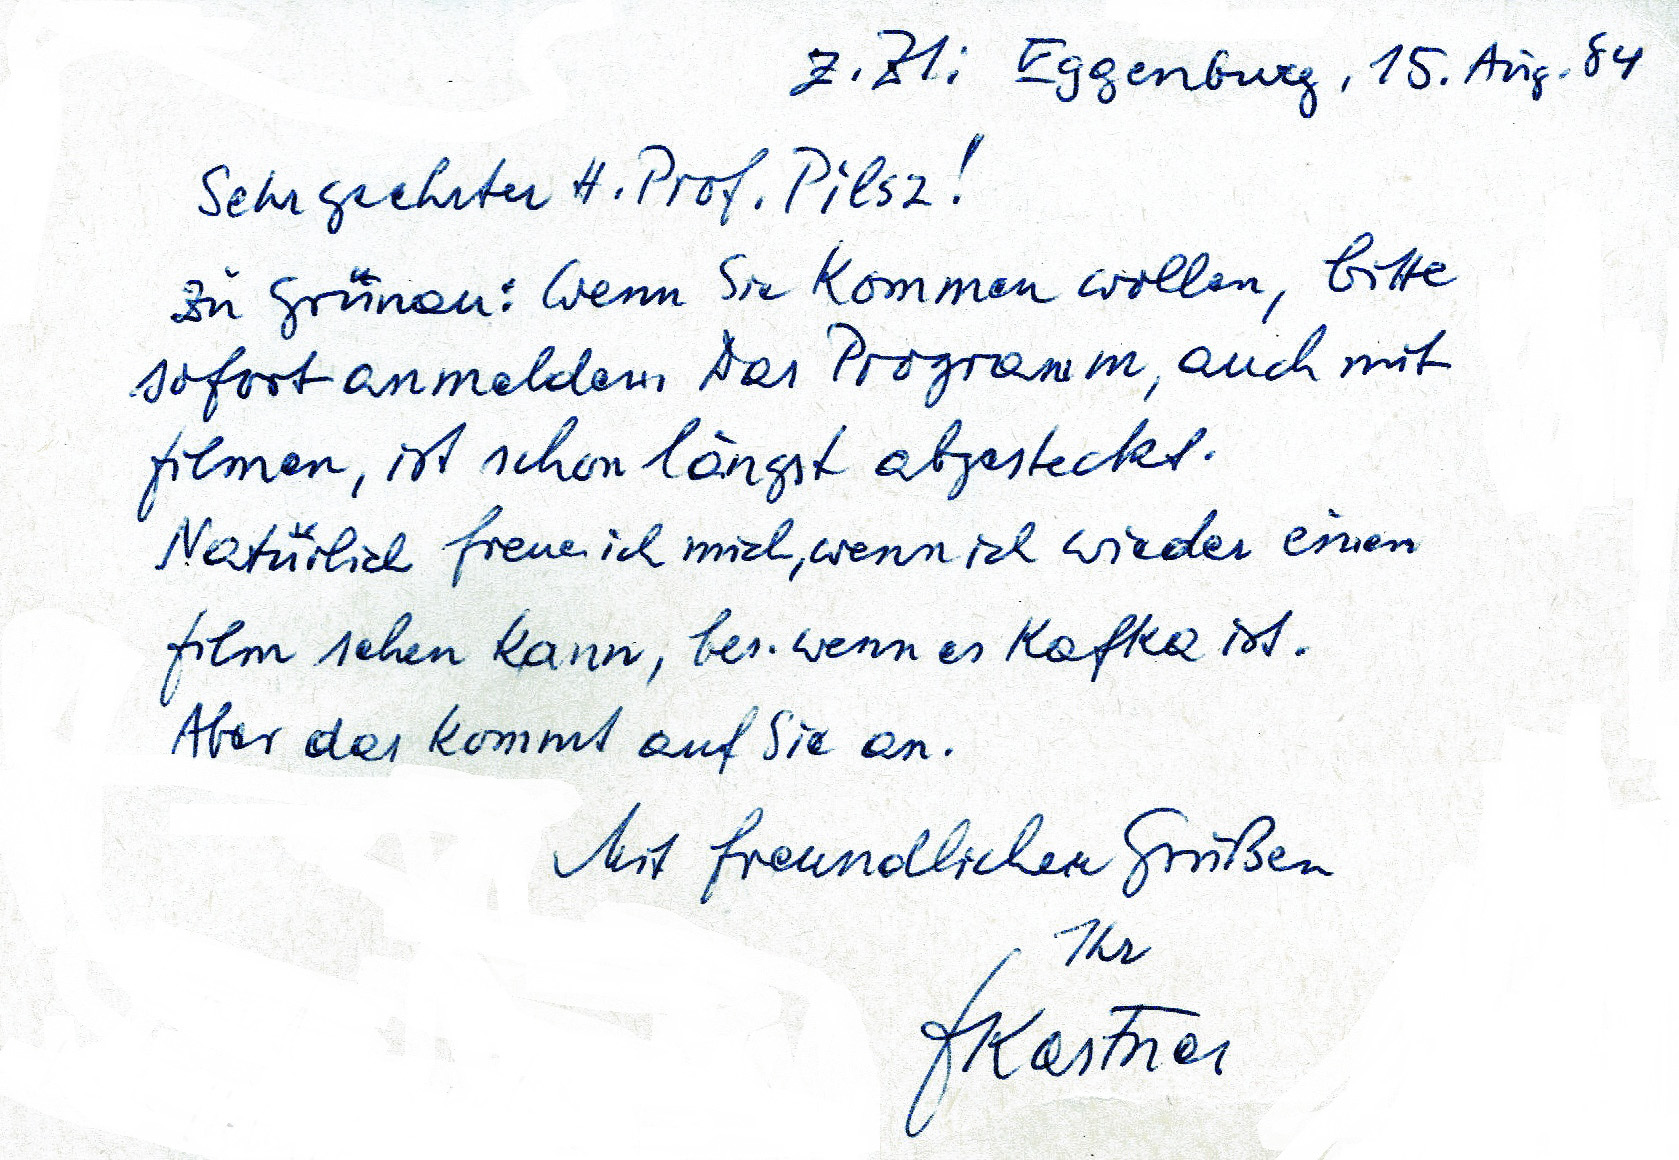 z. Zt. Eggenburg, 15. Aug. 84
Sehr geehrter H. Prof. Pilsz!
Zu Grünau: Wenn Sie kommen wollen, bitte
sofort anmelden. Das Programm, auch mit
filmen, ist schon längst abgesteckt.
Natürlich freue ich mich, wenn ich wieder einen
film sehen kann, bes. wenn es Kafka ist.
Aber das kommt auf Sie an.
Mit freundlichen Grüßen
Ihr
Kastner